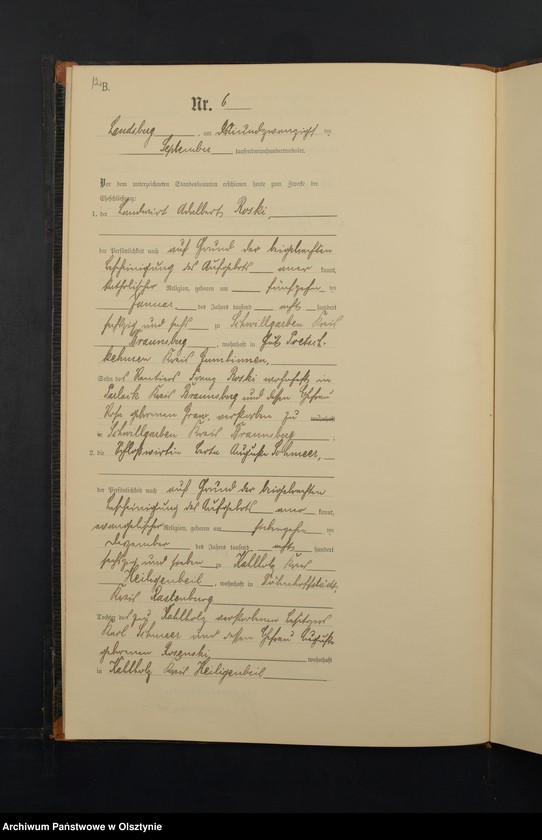 B.
Nr. 6
Landsberg, am
September tausendneunhundert
Vor dem unterzeichneten Standesbeamten erschienen heute zum Zwecke der
Eheschließung:
1. der Landwirt Adalbert Roski,
der Persönlichkeit nach auf Grund der beigebrachten
Bescheinigung des Aufgebots aner kannt,
katholischer Religion, geboren am fünfzehn ten
Januar des Jahres tausend acht hundert
sechzig und sechs zu Schwillgarben Kreis
Braunsberg, wohnhaft in Gut
kehmen Kreis Gumbinnen,
Sohn des Rentiers Franz Roski wohnhaft in
Kreis Braunsberg und dessen Ehefrau
Rosa geborenen verstorben zu wohnhaft
in Schwillgarben Kreis Braunsberg
2. die Schloßwirtin Berta Auguste Schmeer,
der Persönlichkeit nach auf Grund der beigebrachten
Bescheinigung des Aufgebots aner kannt,
evangelischer Religion, geboren am siebengehn ten
Dezember des Jahres tausend acht hundert
sechzig und sieben zu Kahlholz Kreis
Heiligenbeil, wohnhaft in
Kreis Rastenburg
Tochter des zu Kahlholz verstorbenen Besitzers
Karl Schmeer und dessen Ehefrau Auguste
geborenen wohnhaft
in Kahlholz Kreis Heiligenbeil
Archiwum Państwowe w Olsztynie